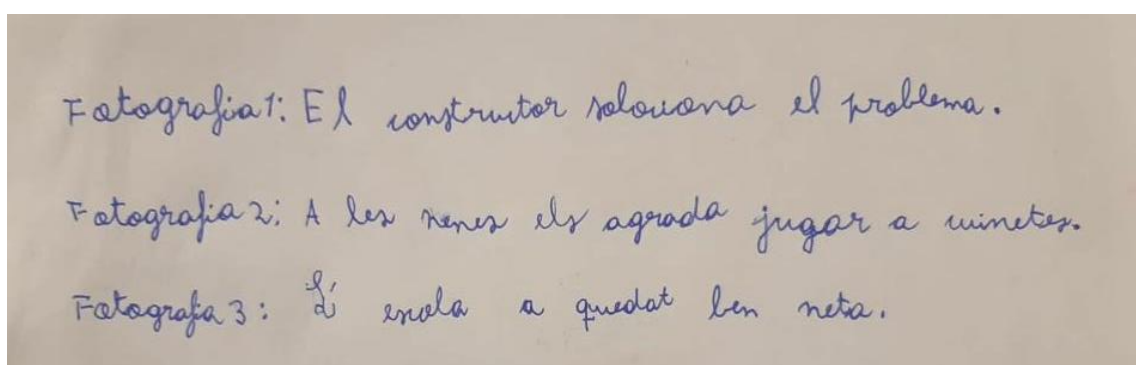 Fotografia 1: El constructor soluciona el problema.
Fotografia 2: A les nenes els agrada jugar a cuinetes.
Fotografia 3: L' escola a quedat ben neta.